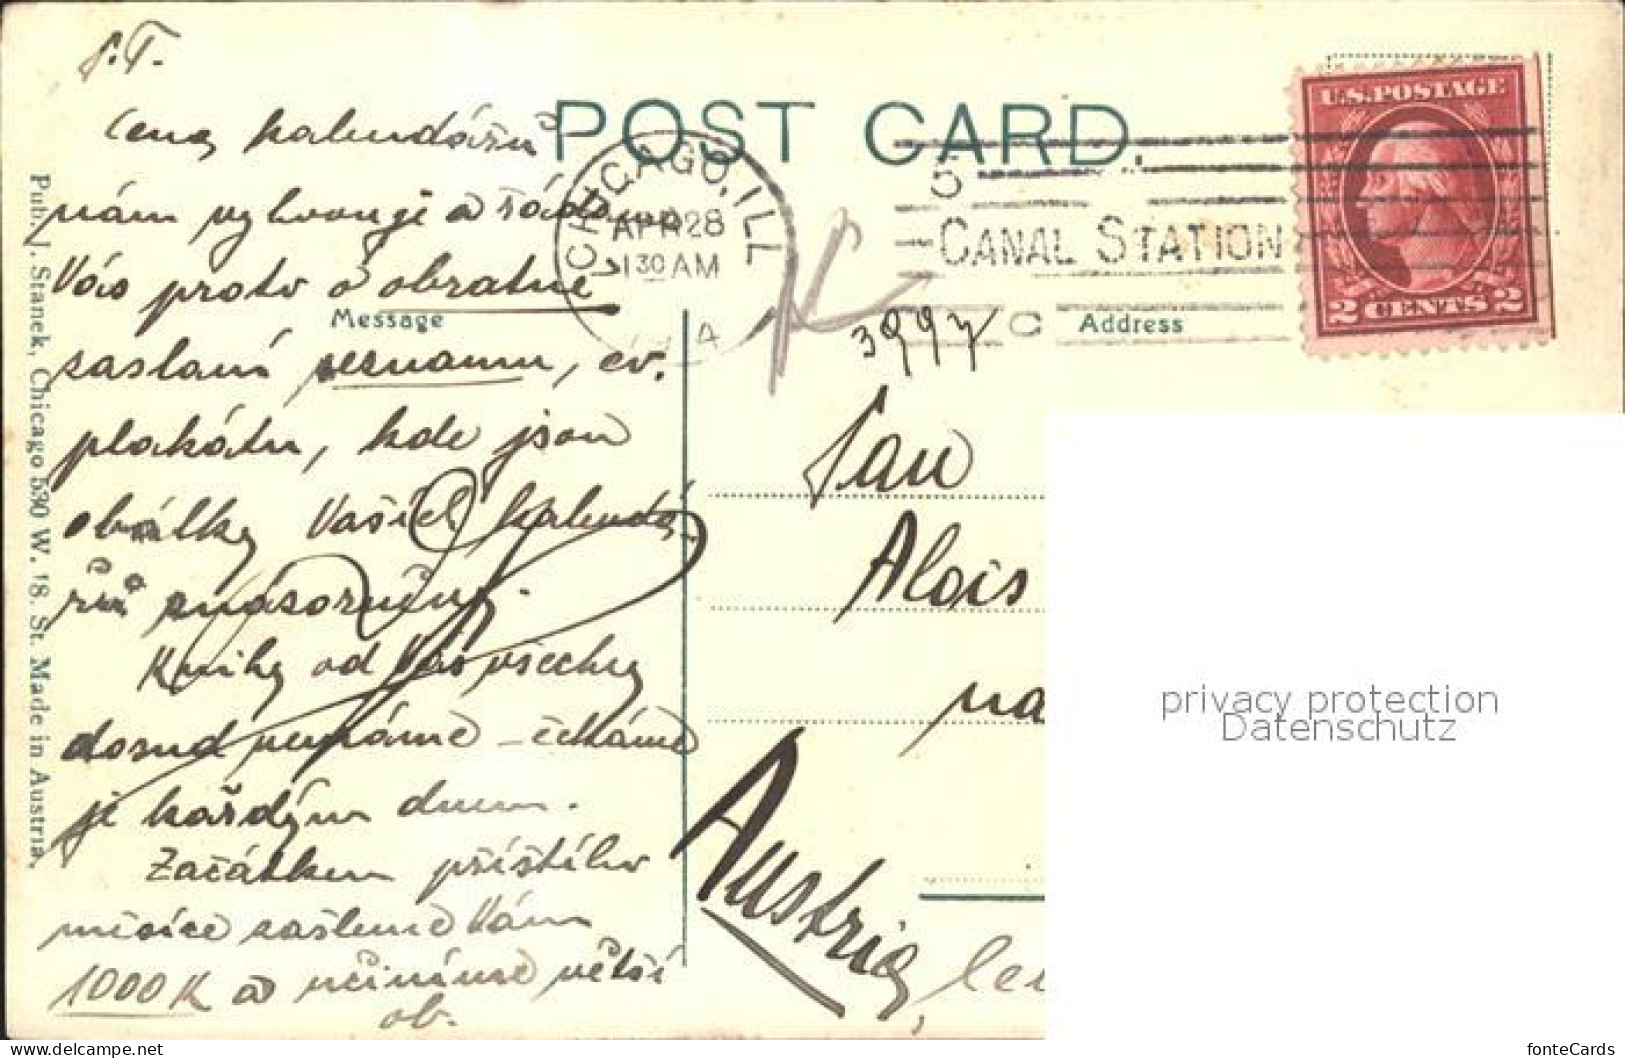 P.T.
Cena kalendářů
nám vyhovuje a žádáme
Vás proto o obratné
zaslaní seznamu, ev.
plakátu, kde jsou
obálky Vašich kalendá-
řů znázorněny.
Knihy od Vás všechny
dosud nemáme – čekáme
je každým dnem.
Začátkem příštího
měsíce zašleme Vám
1000 K a učiníme větší
ob.
Pub. J. Stanek, Chicago 530 W. 18. St. Made in Austria.
POST CARD.
Message
CHICAGO, ILL
APR 28
1 30 AM
4
5
CANAL STATION
C
U.S. POSTAGE
2 CENTS 2
3997
Address
Pan
Alois
na
Austria,
privacy protection
Datenschutz
https://www.delcampe.net
fonteCards